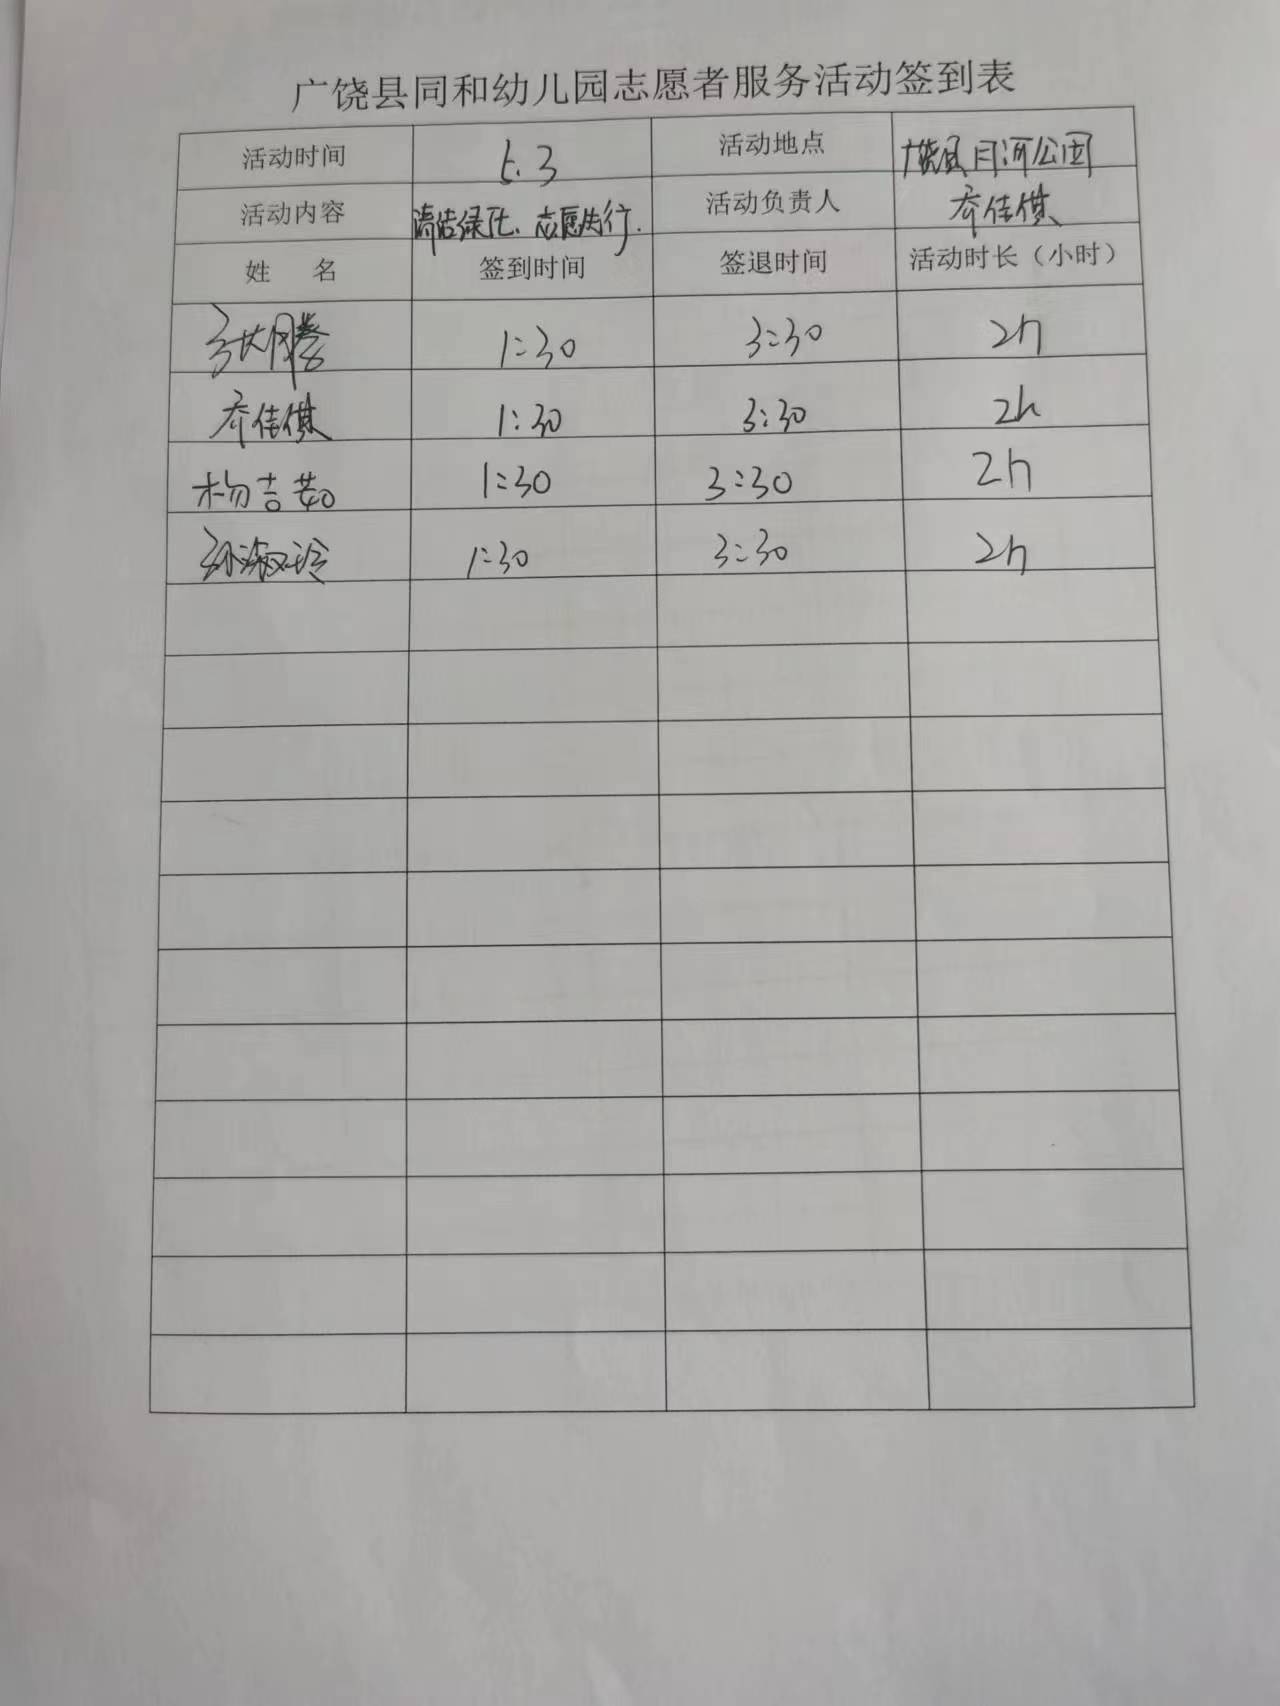 广饶县同和幼儿园志愿者服务活动签到表
活动时间 5.3 活动地点 广饶县月河公园
活动内容 清洁绿化、志愿先行. 活动负责人 乔佳供
姓 名 签到时间 签退时间 活动时长（小时）
1:30 3:30 2h
乔佳供 1:30 3:30 2h
杨吉茹 1:30 3:30 2h
孙淑玲 1:30 3:30 2h